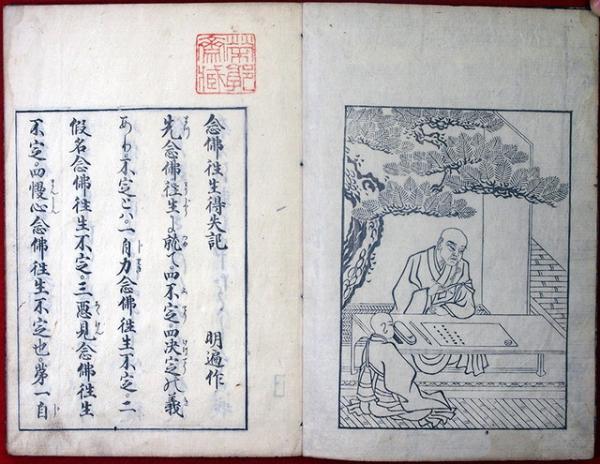 念佛往生得失記　明遍作
先念佛往生に就て四不定。四决定の義
あり。不定とハ。一自力念佛往生不定。二
假名念佛往生不定。三惡見念佛往生
不定。四慢心念佛往生不定也。第一自